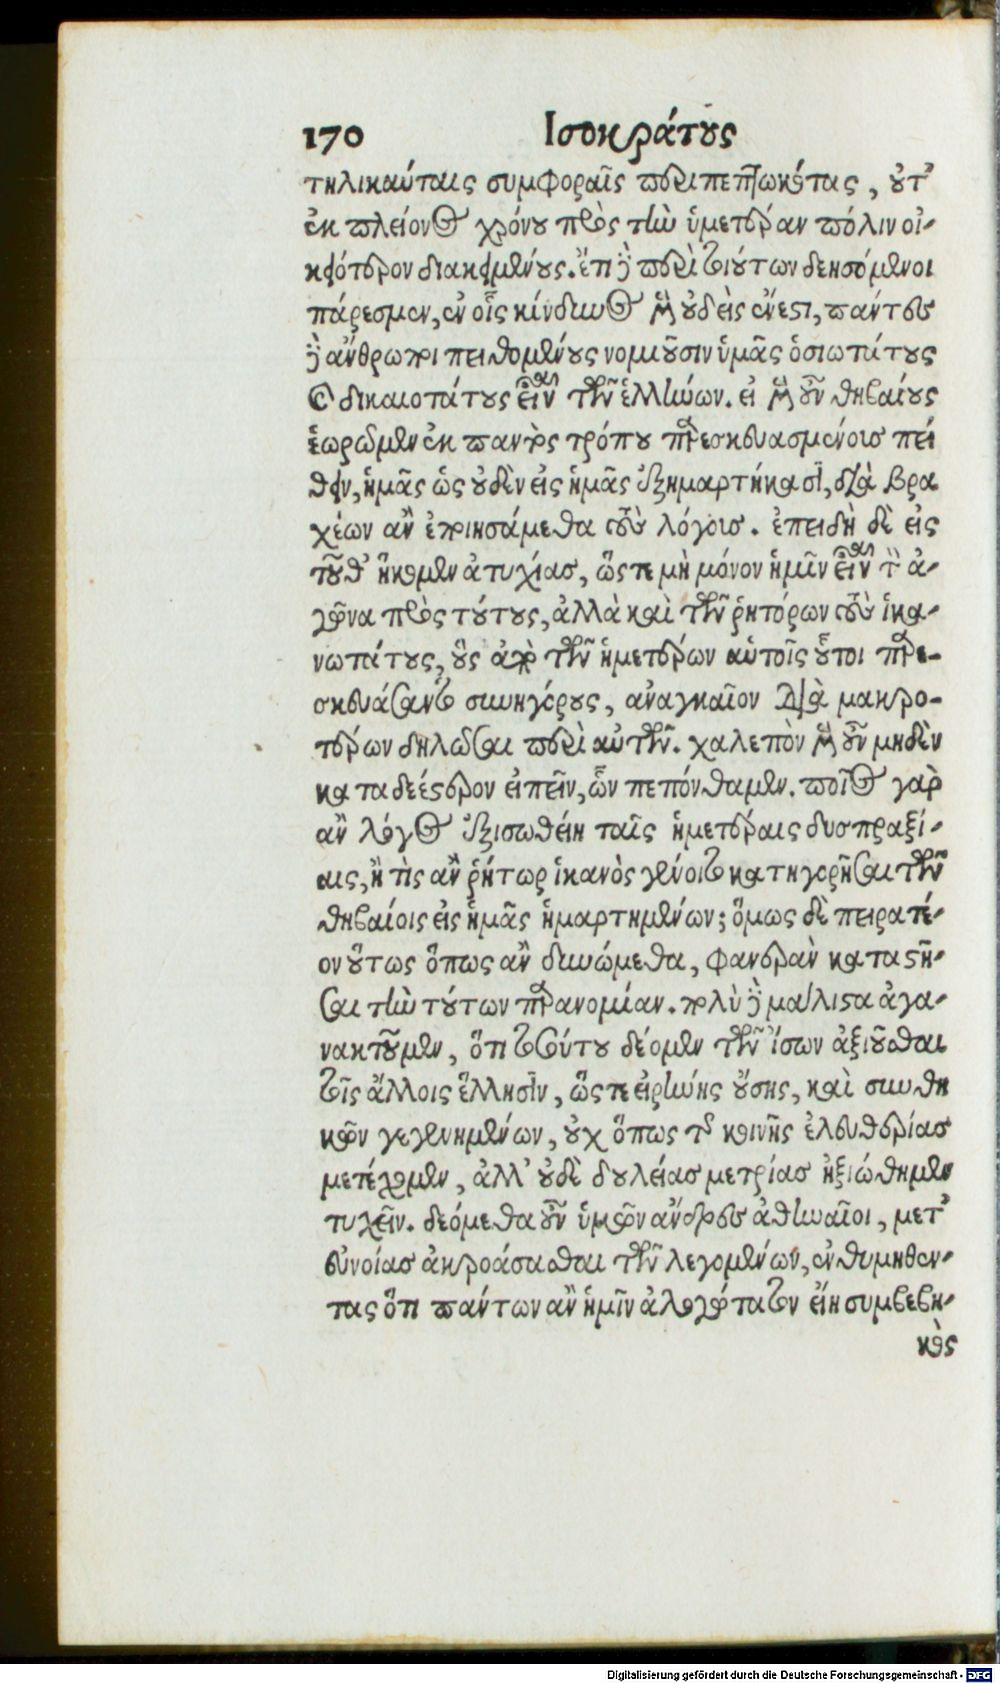 170 Ισοκράτους
τηλικαύταις συμφοραῖς περιπεπτωκότας, οὔτ'
ἐκ πλείονος χρόνου πρὸς τὴν ὑμετέραν πόλιν οἰ-
κειότερον διακειμένους. ἔτι δὲ περὶ τοιούτων δεησόμενοι
πάρεσμεν, ἐν οἷς κίνδυνος μὲν οὐδεὶς ἔνεστι, πάντες
δὲ ἄνθρωποι πειθομένους νομιοῦσιν ὑμᾶς ὁσιωτάτους
καὶ δικαιοτάτους εἶναι τῶν ἑλλήνων. εἰ μὲν οὖν θηβαίους
ἑωρῶμεν ἐκ παντὸς τρόπου παρεσκευασμένοις πεί
θειν, ἡμᾶς ὡς οὐδὲν εἰς ἡμᾶς ἐξημαρτήκασι, διὰ βρα
χέων ἂν ἐποιησάμεθα τοὺς λόγοις. ἐπειδὴ δὲ εἰς
τοῦθ' ἥκομεν ἀτυχίας, ὥστε μὴ μόνον ἡμῖν εἶναι τὸν ἀ-
γῶνα πρὸς τούτους, ἀλλὰ καὶ τῶν ῥητόρων τοὺς ἱκα-
νωτάτους, οὓς ἀπὸ τῶν ἡμετέρων αὑτοῖς οὗτοι παρε-
σκευάσαντο συνηγόρους, ἀναγκαῖον διὰ μακρο-
τέρων δηλῶσαι περὶ αὐτῶν. χαλεπὸν μὲν οὖν μηδὲν
καταδεέστερον εἰπεῖν, ὧν πεπόνθαμεν. ποῖος γὰρ
ἂν λόγος ἐξισωθείη ταῖς ἡμετέραις δυσπραξί-
αις, ἢ τὶς ἂν ῥήτωρ ἱκανὸς γένοιτο κατηγορῆσαι τῶν
θηβαίοις εἰς ἡμᾶς ἡμαρτημένων; ὅμως δὲ πειρατέ-
ον οὕτως ὅπως ἂν δυνώμεθα, φανερὰν καταστῆ-
σαι τὴν τούτων παρανομίαν. πολὺ δὲ μάλιστα ἀγα-
νακτοῦμεν, ὅτι τοσούτου δέομεν τῶν ἴσων ἀξιοῦσθαι
τοῖς ἄλλοις ἕλλησιν, ὥστε εἰρήνης οὔσης, καὶ συνθη
κῶν γεγενημένων, οὐχ ὅπως τῆς κοινῆς ἐλευθερίας
μετέχομεν, ἀλλ' οὐδὲ δουλείας μετρίας ἠξιώθημεν
τυχεῖν. δεόμεθα οὖν ὑμῶν ἄνδρες ἀθηναῖοι, μετ'
εὐνοίας ἀκροάσασθαι τῶν λεγομένων, ἐνθυμηθέν-
τας ὅτι πάντων ἂν ἡμῖν ἀλογώτατον εἴη συμβεβη-
κὸς
Digitalisierung gefördert durch die Deutsche Forschungsgemeinschaft - DFG